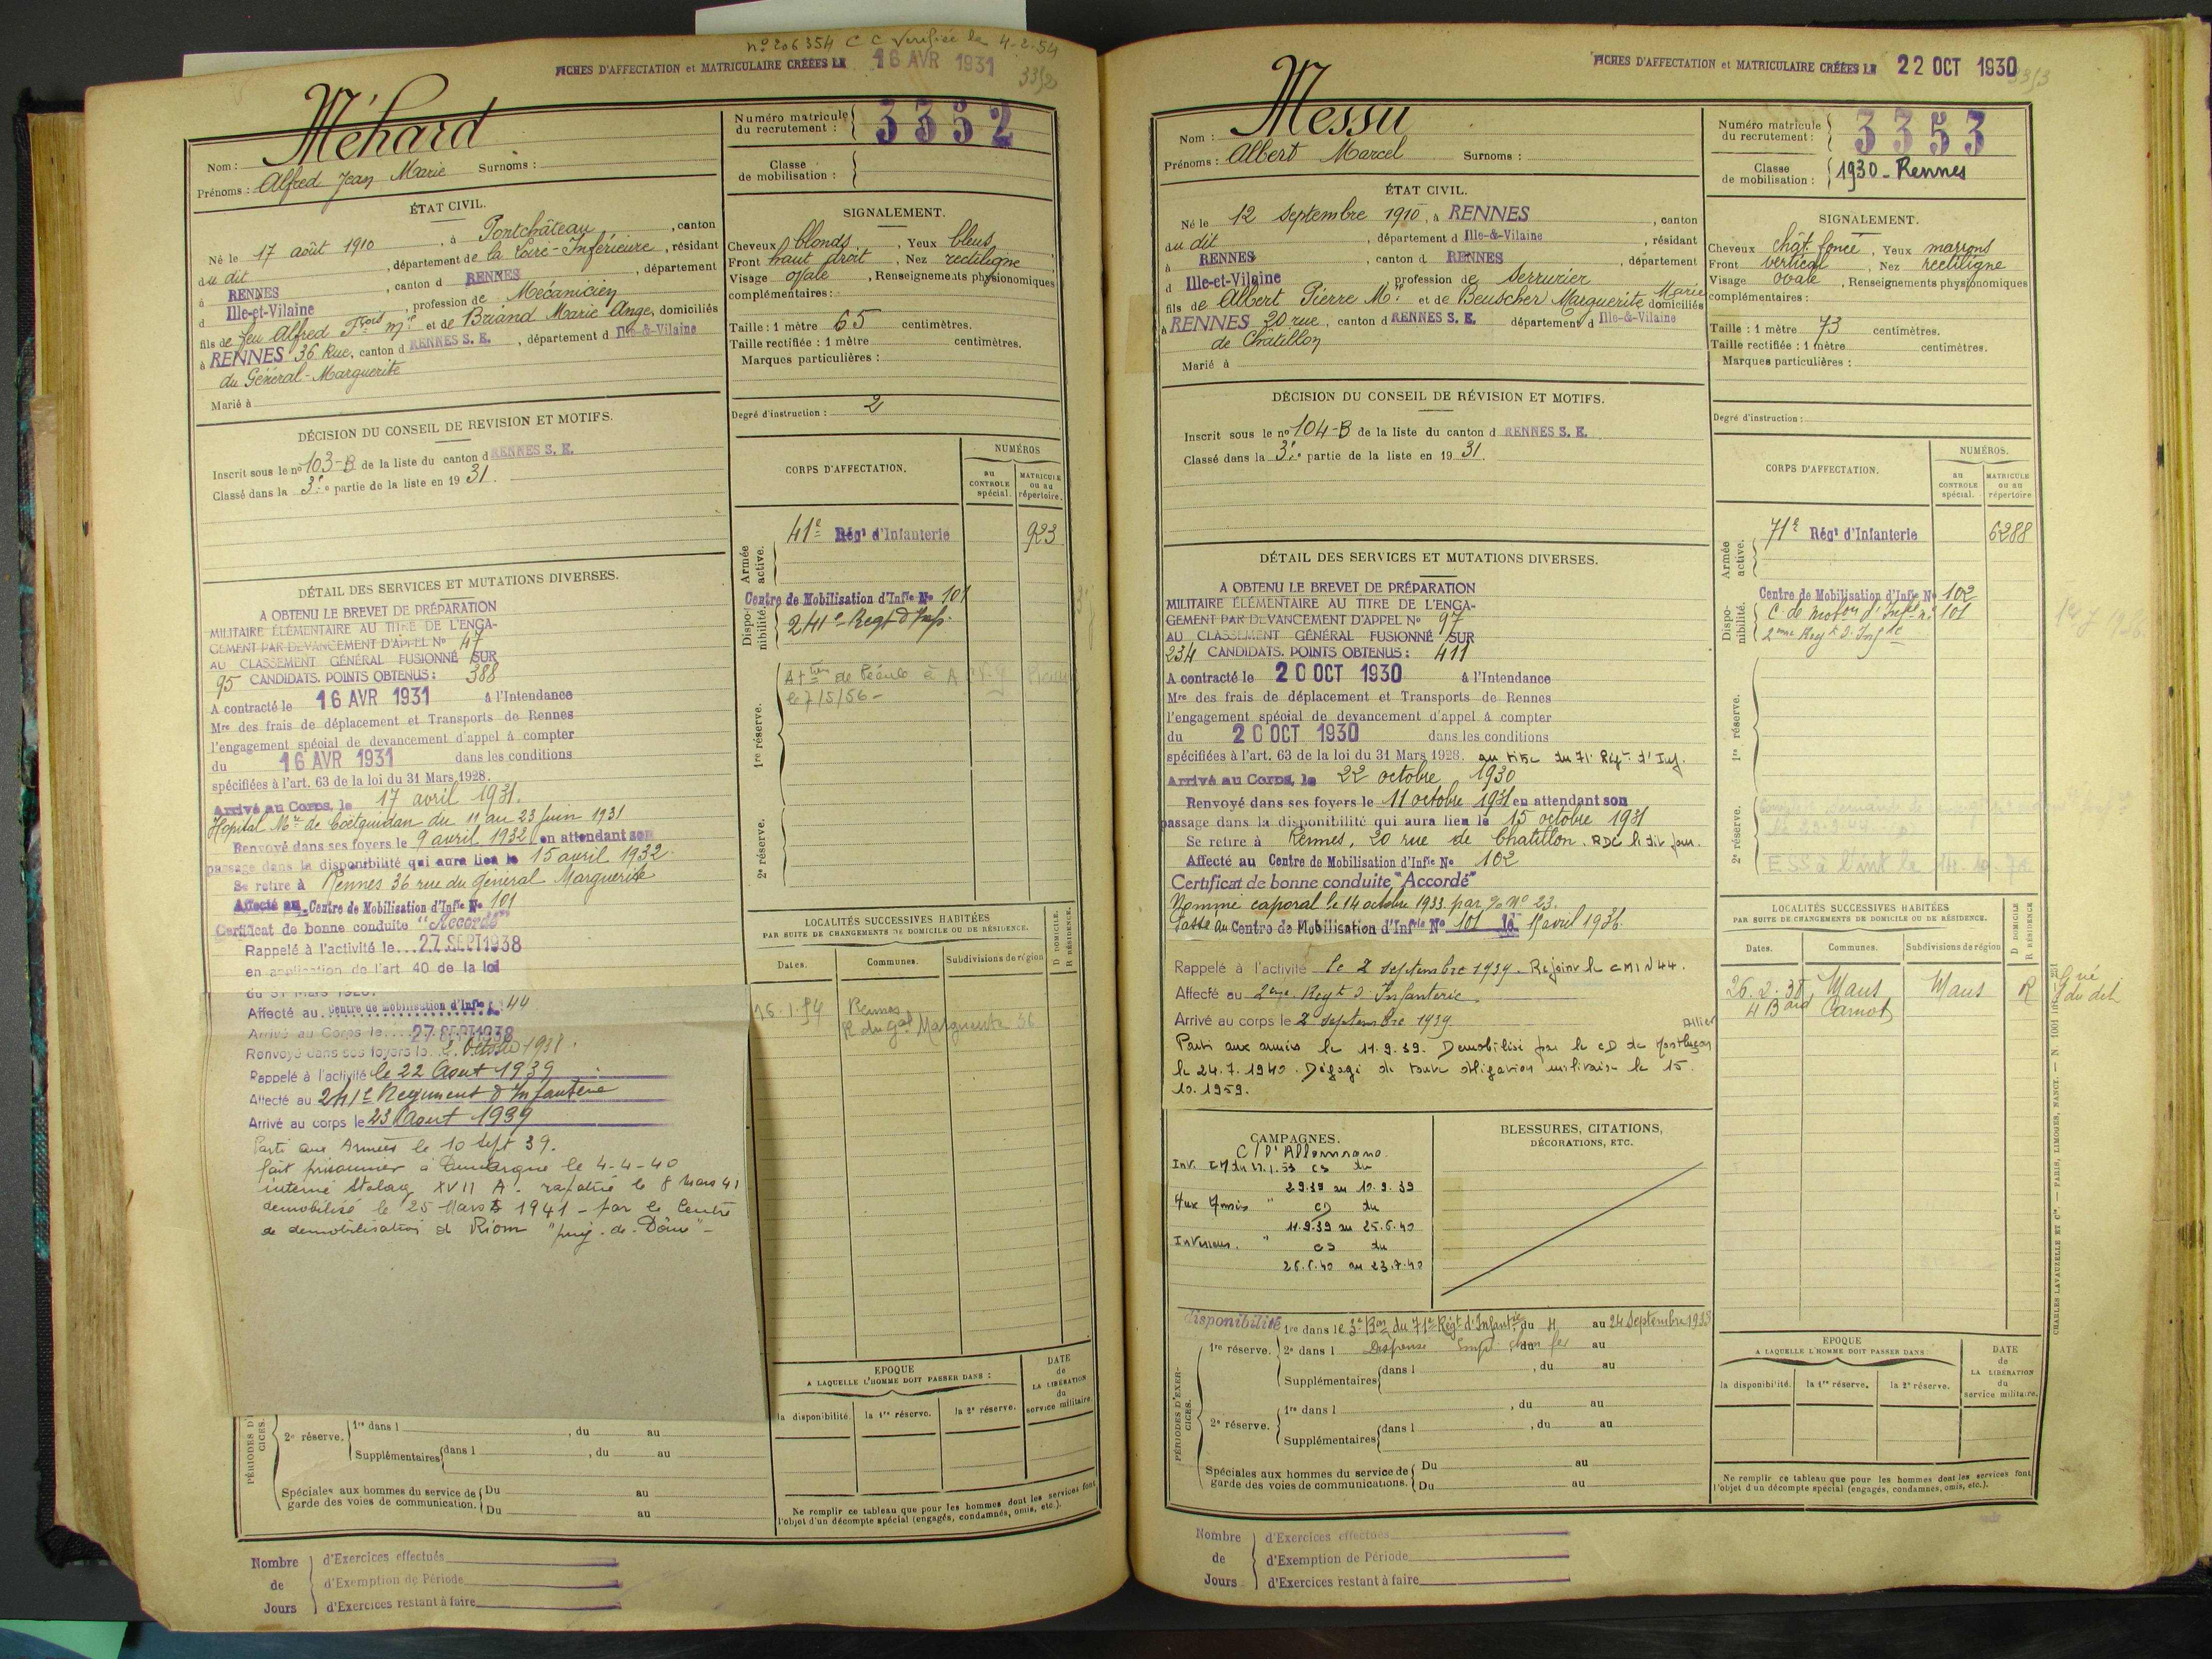 nº 206354 C C Verifiée le 4-2-54
FICHES D'AFFECTATION et MATRICULAIRE CRÉÉES LE 16 AVR 1931
Méhard
Nom :
Prénoms : Alfred Jean Marie Surnoms :
Numéro matricule du recrutement : 3352
Classe de mobilisation :
ÉTAT CIVIL.
Né le 17 août 1910, à Pontchâteau, canton
du dit, département de la Loire-Inférieure, résidant
à RENNES, canton d RENNES, département
d Ille-et-Vilaine, profession de Mécanicien
fils de feu Alfred Fçois Mie et de Briand Marie Ange, domiciliés
à RENNES 36 Rue, canton d RENNES S. E., département d Ille-&-Vilaine
du Général-Marguerite
Marié à
SIGNALEMENT.
Cheveux blonds, Yeux bleus
Front haut droit, Nez rectiligne
Visage ovale, Renseignements physionomiques
complémentaires :
Taille : 1 mètre 65 centimètres.
Taille rectifiée : 1 mètre centimètres.
Marques particulières :
Degré d'instruction : 2
DÉCISION DU CONSEIL DE REVISION ET MOTIFS.
Inscrit sous le nº 103-B de la liste du canton d RENNES S. E.
Classé dans la 3e partie de la liste en 1931.
CORPS D'AFFECTATION.
NUMÉROS
au CONTROLE spécial.
MATRICULE ou au répertoire.
Armée active.
41e Régt d'Infanterie 923
Disponibilité.
Centre de Mobilisation d'Infie Nº 101
241e Regt d'Inf.
1re réserve.
de Pécule à
le 7/5/56-
2e réserve.
DÉTAIL DES SERVICES ET MUTATIONS DIVERSES.
A OBTENU LE BREVET DE PRÉPARATION
MILITAIRE ÉLÉMENTAIRE AU TITRE DE L'ENGA-
GEMENT PAR DEVANCEMENT D'APPEL Nº 47
AU CLASSEMENT GÉNÉRAL FUSIONNÉ SUR
95 CANDIDATS. POINTS OBTENUS : 388
A contracté le 16 AVR 1931 à l'Intendance
Mre des frais de déplacement et Transports de Rennes
l'engagement spécial de devancement d'appel à compter
du 16 AVR 1931 dans les conditions
spécifiées à l'art. 63 de la loi du 31 Mars 1928.
Arrivé au Corps, le 17 avril 1931.
Hopital Mre de Coëtquidan du 11 au 23 juin 1931
Renvoyé dans ses foyers le 9 avril 1932 en attendant son
passage dans la disponibilité qui aura lieu le 15 avril 1932.
Se retire à Rennes 36 rue du Général Marguerite
Affecté au Centre de Mobilisation d'Infie Nº 101
Certificat de bonne conduite "Accordé"
Rappelé à l'activité le 27 SEPT 1938
en application de l'art 40 de la loi
du 31 Mars 1928.
Affecté au Centre de Mobilisation d'Infie 44
Arrivé au Corps le 27 SEPT 1938
Renvoyé dans ses foyers le 2 Octobre 1938.
Rappelé à l'activité le 22 Aout 1939
Affecté au 241e Regiment d'Infanterie
Arrivé au corps le 23 Aout 1939
Parti aux Armées le 10 Sept 39.
fait prisonnier à le 4-4-40
interné Stalag XVII A. rapatrié le 8 Mars 41
demobilisé le 25 Mars 1941 - par le Centre
de demobilisation d Riom "puy-de-Dôme"-
LOCALITÉS SUCCESSIVES HABITÉES
PAR SUITE DE CHANGEMENTS DE DOMICILE OU DE RÉSIDENCE.
D DOMICILE. R RÉSIDENCE.
Dates. Communes. Subdivisions de région
Rennes
R du Gal Marguerite 36
EPOQUE
A LAQUELLE L'HOMME DOIT PASSER DANS :
DATE de LA LIBÉRATION du service militaire.
la disponibilité la 1re réserve. la 2e réserve.
Ne remplir ce tableau que pour les hommes dont les services font
l'objet d'un décompte spécial (engagés, condamnés, omis, etc.).
2e réserve. 1re dans l , du au
Supplémentaires dans l , du au
Spéciales aux hommes du service de garde des voies de communication. Du au
Du au
Nombre de Jours
d'Exercices effectués
d'Exemption de Période
d'Exercices restant à faire
FICHES D'AFFECTATION et MATRICULAIRE CRÉÉES LE 22 OCT 1930
Messu
Nom :
Prénoms : Albert Marcel Surnoms :
Numéro matricule du recrutement : 3353
Classe de mobilisation : 1930 - Rennes
ÉTAT CIVIL.
Né le 12 Septembre 1910, à RENNES, canton
du dit, département d Ille-&-Vilaine, résidant
à RENNES, canton d RENNES, département
d Ille-et-Vilaine, profession de Serrurier
fils de Albert Pierre M. et de Beuscher Marguerite Marie domiciliés
à RENNES 20 rue, canton d RENNES S. E. département d Ille-&-Vilaine
de Châtillon
Marié à
SIGNALEMENT.
Cheveux chât. foncé, Yeux marrons
Front vertical, Nez rectiligne
Visage ovale, Renseignements physionomiques
complémentaires :
Taille : 1 mètre 73 centimètres.
Taille rectifiée : 1 mètre centimètres.
Marques particulières :
Degré d'instruction :
DÉCISION DU CONSEIL DE RÉVISION ET MOTIFS.
Inscrit sous le nº 104-B de la liste du canton d RENNES S. E.
Classé dans la 3e partie de la liste en 1931.
CORPS D'AFFECTATION.
NUMÉROS.
au CONTROLE spécial.
MATRICULE ou au répertoire
Armée active.
71e Régt d'Infanterie 6288
Disponibilité.
Centre de Mobilisation d'Infie Nº 102
C. de Mobon d'Infie nº 101
2eme Regt d'Infie
1re réserve.
2e réserve.
DÉTAIL DES SERVICES ET MUTATIONS DIVERSES.
A OBTENU LE BREVET DE PRÉPARATION
MILITAIRE ÉLÉMENTAIRE AU TITRE DE L'ENGA-
GEMENT PAR DEVANCEMENT D'APPEL Nº 97
AU CLASSEMENT GÉNÉRAL FUSIONNÉ SUR
234 CANDIDATS. POINTS OBTENUS : 411
A contracté le 20 OCT 1930 à l'Intendance
Mre des frais de déplacement et Transports de Rennes
l'engagement spécial de devancement d'appel à compter
du 20 OCT 1930 dans les conditions
spécifiées à l'art. 63 de la loi du 31 Mars 1928. au titre du 71e Régt d'Inf.
Arrivé au Corps, le 22 octobre 1930
Renvoyé dans ses foyers le 11 octobre 1931 en attendant son
passage dans la disponibilité qui aura lieu le 15 octobre 1931
Se retire à Rennes, 20 rue de Chatillon. RDC le dit jour.
Affecté au Centre de Mobilisation d'Infie Nº 102
Certificat de bonne conduite "Accordé"
Nommé caporal le 14 octobre 1933. par Nº 23.
Passé au Centre de Mobilisation d'Infie Nº 101 le avril 1936.
Rappelé à l'activité le 2 septembre 1939. Rejoint le CMI N44.
Affecté au 2eme Regt d'Infanterie.
Arrivé au corps le 2 septembre 1939.
Parti aux armées le 11.9.39. Demobilisé par le CD de Montluçon Allier
le 24.7.1940. Dégagé de toute obligation militaire le 15.
10.1959.
CAMPAGNES.
C/ D'Allemagne.
CS du
2.9.39 au 10.9.39
Aux Armées " CD du
11.9.39 au 25.6.40
Intérieur. " CS du
26.6.40 au 23.7.40
BLESSURES, CITATIONS,
DÉCORATIONS, ETC.
LOCALITÉS SUCCESSIVES HABITÉES
PAR SUITE DE CHANGEMENTS DE DOMICILE OU DE RÉSIDENCE.
D DOMICILE R RÉSIDENCE.
Dates. Communes. Subdivisions de région
26.2.38 Mans Mans R
4 Bard Carnot
PÉRIODES D'EXERCICES.
disponibilité 1re dans le 3e Bon du 71e Régt d'Infantie, du 4 au 24 Septembre 1933
1re réserve. 2e dans l Dispense Empl. chem fer au
Supplémentaires dans l , du au
2e réserve. 1re dans l , du au
Supplémentaires dans l , du au
Spéciales aux hommes du service de garde des voies de communications. Du au
Du au
EPOQUE
A LAQUELLE L'HOMME DOIT PASSER DANS
DATE de LA LIBÉRATION du service militaire.
la disponibilité. la 1re réserve. la 2e réserve.
Ne remplir ce tableau que pour les hommes dont les services font
l'objet d'un décompte spécial (engagés, condamnés, omis, etc.).
CHARLES LAVAUZELLE ET Cie. — PARIS, LIMOGES, NANCY.
Nombre de Jours
d'Exercices effectués
d'Exemption de Période
d'Exercices restant à faire